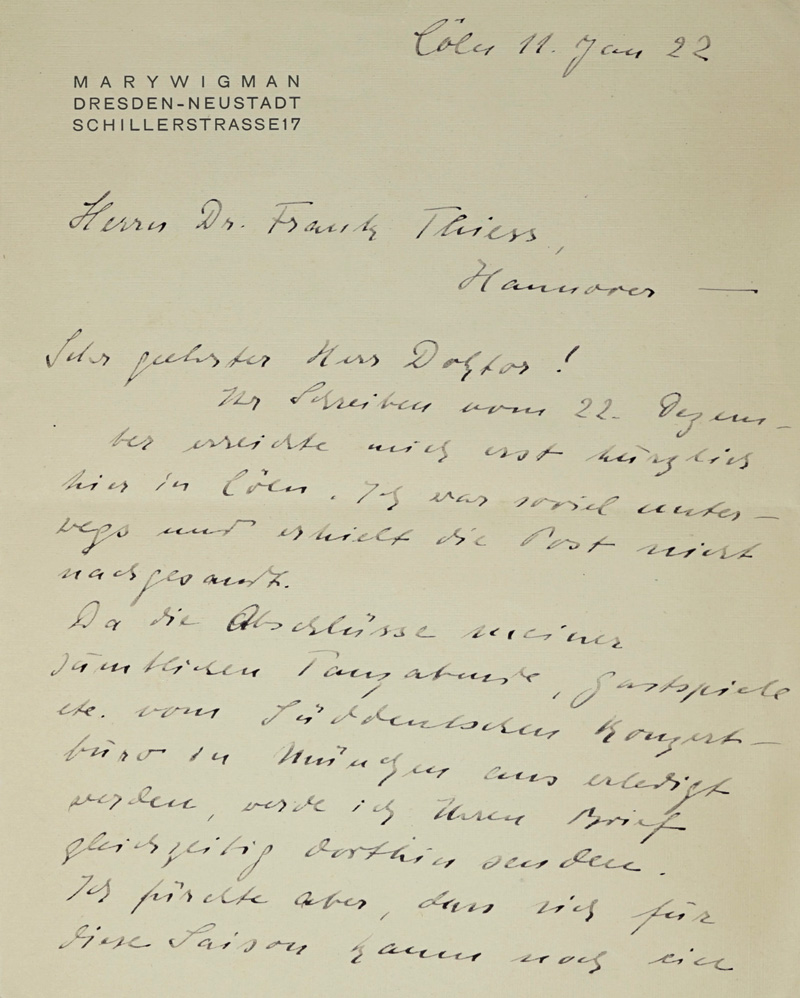 Cöln 11. Jan 22
MARY WIGMAN
DRESDEN-NEUSTADT
SCHILLERSTRASSE 17
Herrn Dr. Frank Thiess,
Hannover —
Sehr geehrter Herr Doktor!
Ihr Schreiben vom 22. Dezem-
ber erreichte mich erst kürzlich
hier in Cöln. Ich war soviel unter-
wegs und erhielt die Post nicht
nachgesandt.
Da die Abschlüsse meiner
sämtlichen Tanzabende, Gastspiele
etc. vom Süddeutschen Konzert-
büro in München aus erledigt
werden, werde ich Ihren Brief
gleichzeitig dorthin senden.
Ich fürchte aber, dass sich für
diese Saison kaum noch ein